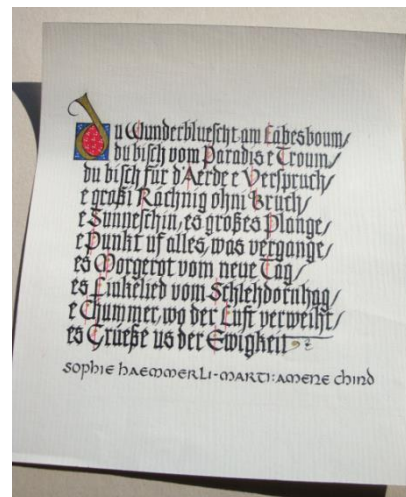 Du Wunderbluescht am Läbesboum/
du bisch vom Paradis e Troum/
du bisch für d'Aerde e Verspruch/
e großi Rächnig ohni Bruch/
e Sunneschin, es großes Plange/
e Punkt uf alles, was vergange/
es Morgerot vom neue Tag/
es Finkelied vom Schlehdornhag/
e Chummer, wo der Luft verweiht/
es Grueße us der Ewigkeit
sophie haemmerli-marti: amene chind